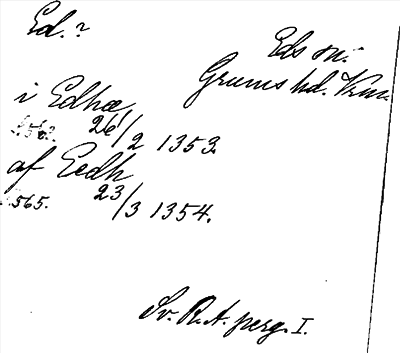 Ed.?
Eds sn.
Grums hd. Vrm.
i Edhæ
26/2 1353.
af Eedh
565. 23/3 1354.
Sv. R.A. perg. I.